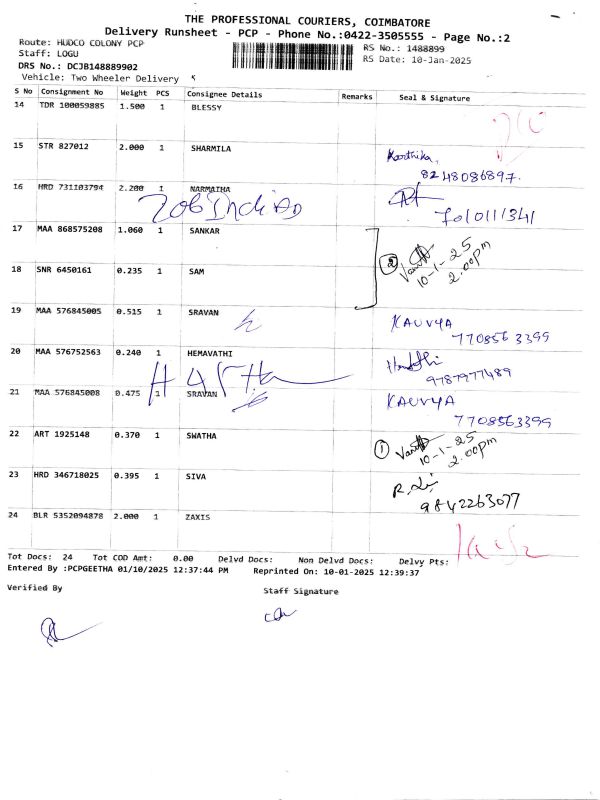 THE PROFESSIONAL COURIERS, COIMBATORE
Delivery Runsheet - PCP - Phone No.:0422-3505555 - Page No.:2
Route: HUDCO COLONY PCP
RS No.: 1488899
Staff: LOGU
RS Date: 10-Jan-2025
DRS No.: DCJB148889902
Vehicle: Two Wheeler Delivery
S No Consignment No Weight PCS Consignee Details Remarks Seal & Signature
14 TDR 100059885 1.500 1 BLESSY
15 STR 827012 2.000 1 SHARMILA
Karthika,
8248086897.
16 HRD 731103794 2.200 1 NARMATHA
7010111341
17 MAA 868575208 1.060 1 SANKAR
2
10-1-25
2.00pm
18 SNR 6450161 0.235 1 SAM
19 MAA 576845005 0.515 1 SRAVAN
KAUVYA
7708563399
20 MAA 576752563 0.240 1 HEMAVATHI
9787977489
21 MAA 576845008 0.475 1 SRAVAN
KAUVYA
7708563399
22 ART 1925148 0.370 1 SWATHA
1
10-1-25
2.00pm
23 HRD 346718025 0.395 1 SIVA
9842263077
24 BLR 5352094878 2.000 1 ZAXIS
Tot Docs: 24 Tot COD Amt: 0.00 Delvd Docs: Non Delvd Docs: Delvy Pts:
Entered By :PCPGEETHA 01/10/2025 12:37:44 PM Reprinted On: 10-01-2025 12:39:37
Verified By
Staff Signature